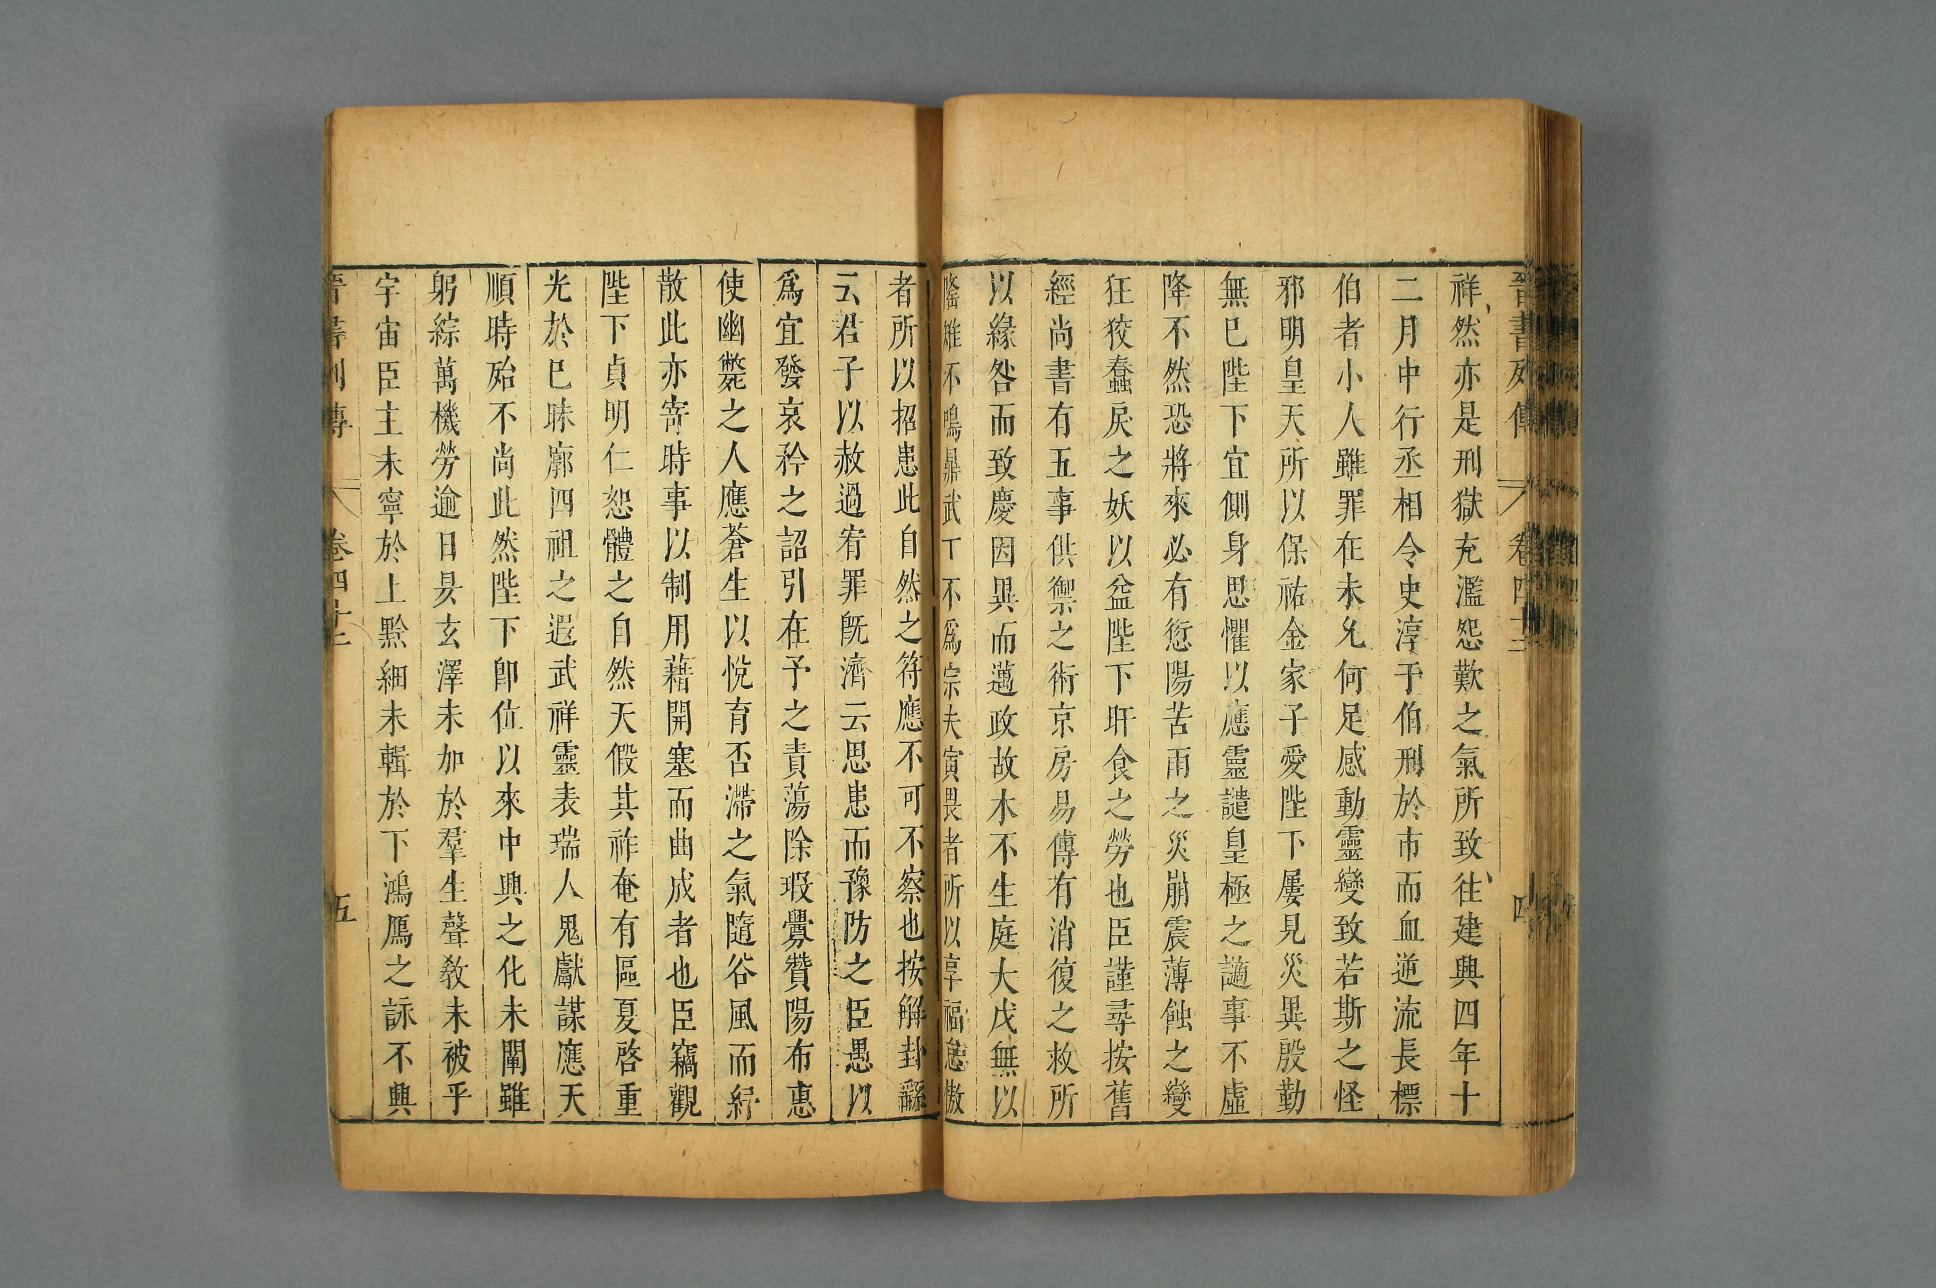 晉書列傳 卷四十二 四
祥然亦是刑獄充濫怨歎之氣所致往建興四年十
二月中行丞相令史淳于伯刑於市而血逆流長標
伯者小人雖罪在未允何足感動靈變致若斯之怪
邪明皇天所以保祐金家子愛陛下屢見災異殷勤
無已陛下宜側身思懼以應靈譴皇極之讁事不虛
降不然恐將來必有愆陽苦雨之災崩震薄蝕之變
狂狡蠢戾之妖以益陛下旰食之勞也臣謹尋按舊
經尚書有五事供禦之術京房易傳有消復之救所
以緣咎而致慶因異而邁政故木不生庭大戊無以
隆雉不鳴鼎武丁不爲宗夫寅畏者所以享福怠傲
者所以招患此自然之符應不可不察也按解卦繇
云君子以赦過宥罪旣濟云思患而豫防之臣愚以
爲宜發哀矜之詔引在予之責蕩除瑕釁贊陽布惠
使幽斃之人應蒼生以悅育否滯之氣隨谷風而紓
散此亦寄時事以制用藉開塞而曲成者也臣竊觀
陛下貞明仁恕體之自然天假其祚奄有區夏啓重
光於已昧廓四祖之遐武祥靈表瑞人鬼獻謀應天
順時殆不尚此然陛下卽位以來中興之化未闡雖
躬綜萬機勞逾日昃玄澤未加於羣生聲敎未被乎
宇宙臣主未寧於上黔細未輯於下鴻鴈之詠不興
晉書列傳 卷四十二 五